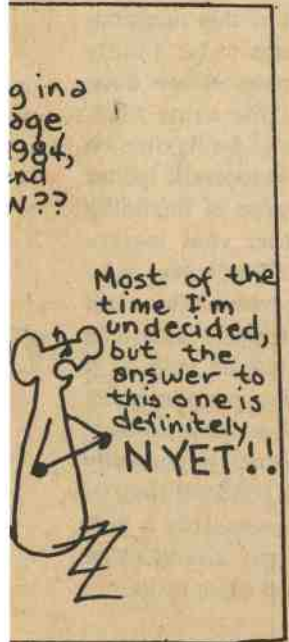 g in a
age
1984,
end
N??
Most of the
time I'm
undecided,
but the
answer to
this one is
definitely
NYET!!